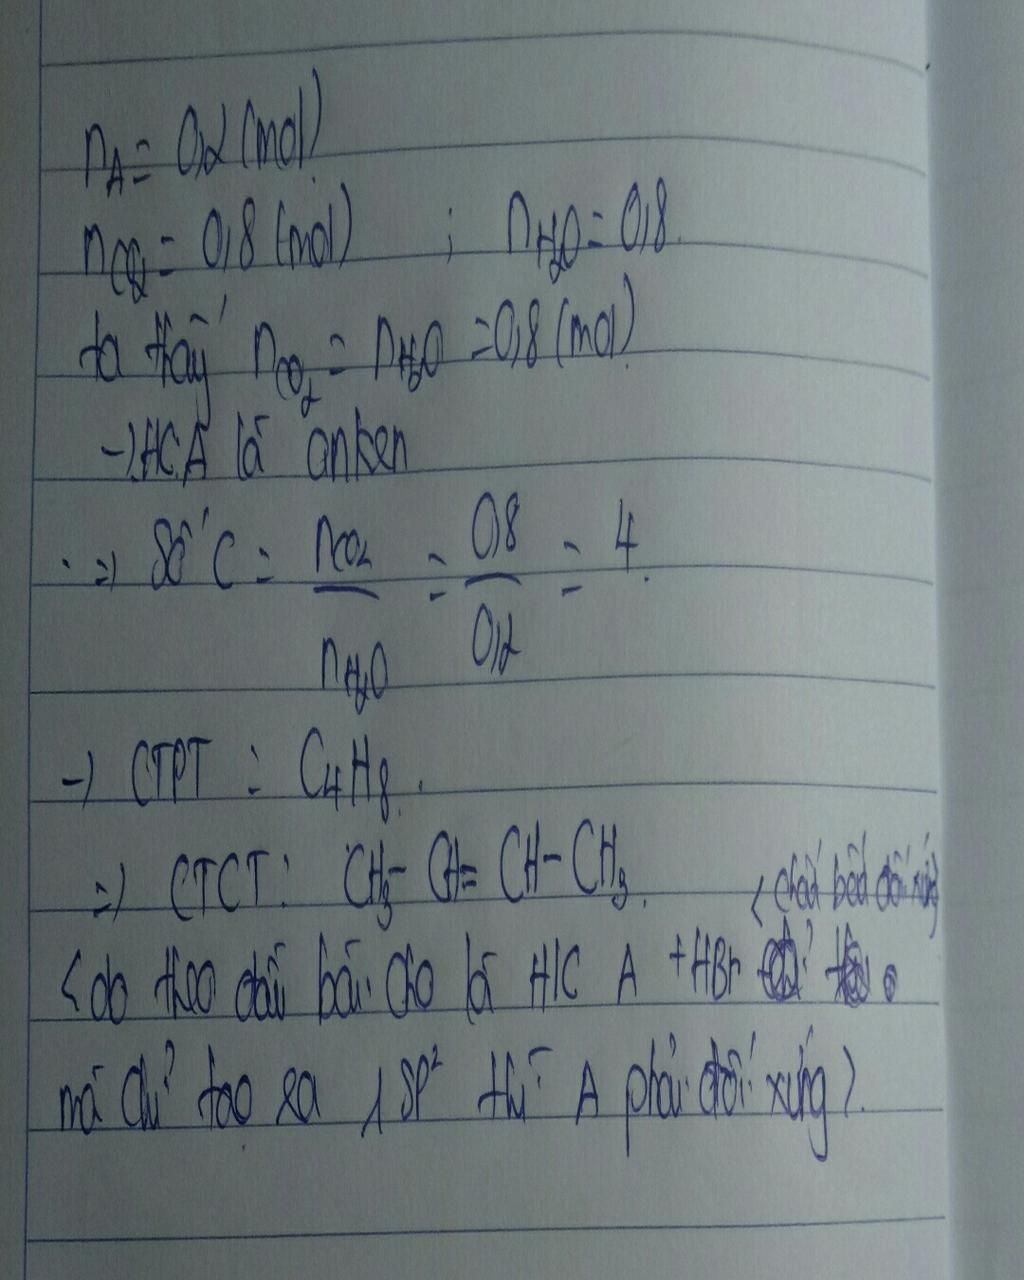 nA = 0,2 (mol)
nCO2 = 0,8 (mol) ; nH2O = 0,8.
ta thấy nCO2 = nH2O = 0,8 (mol)
→ HC A là anken
⇒ Số C = nCO2 / nH2O = 0,8 / 0,2 = 4.
→ CTPT : C4H8.
⇒ CTCT: CH3- CH= CH- CH3. < chất đối xứng
< do theo đầu bài cho là H/C A + HBr
mà chỉ tạo ra 1 SP² thì A phải đối xứng >.